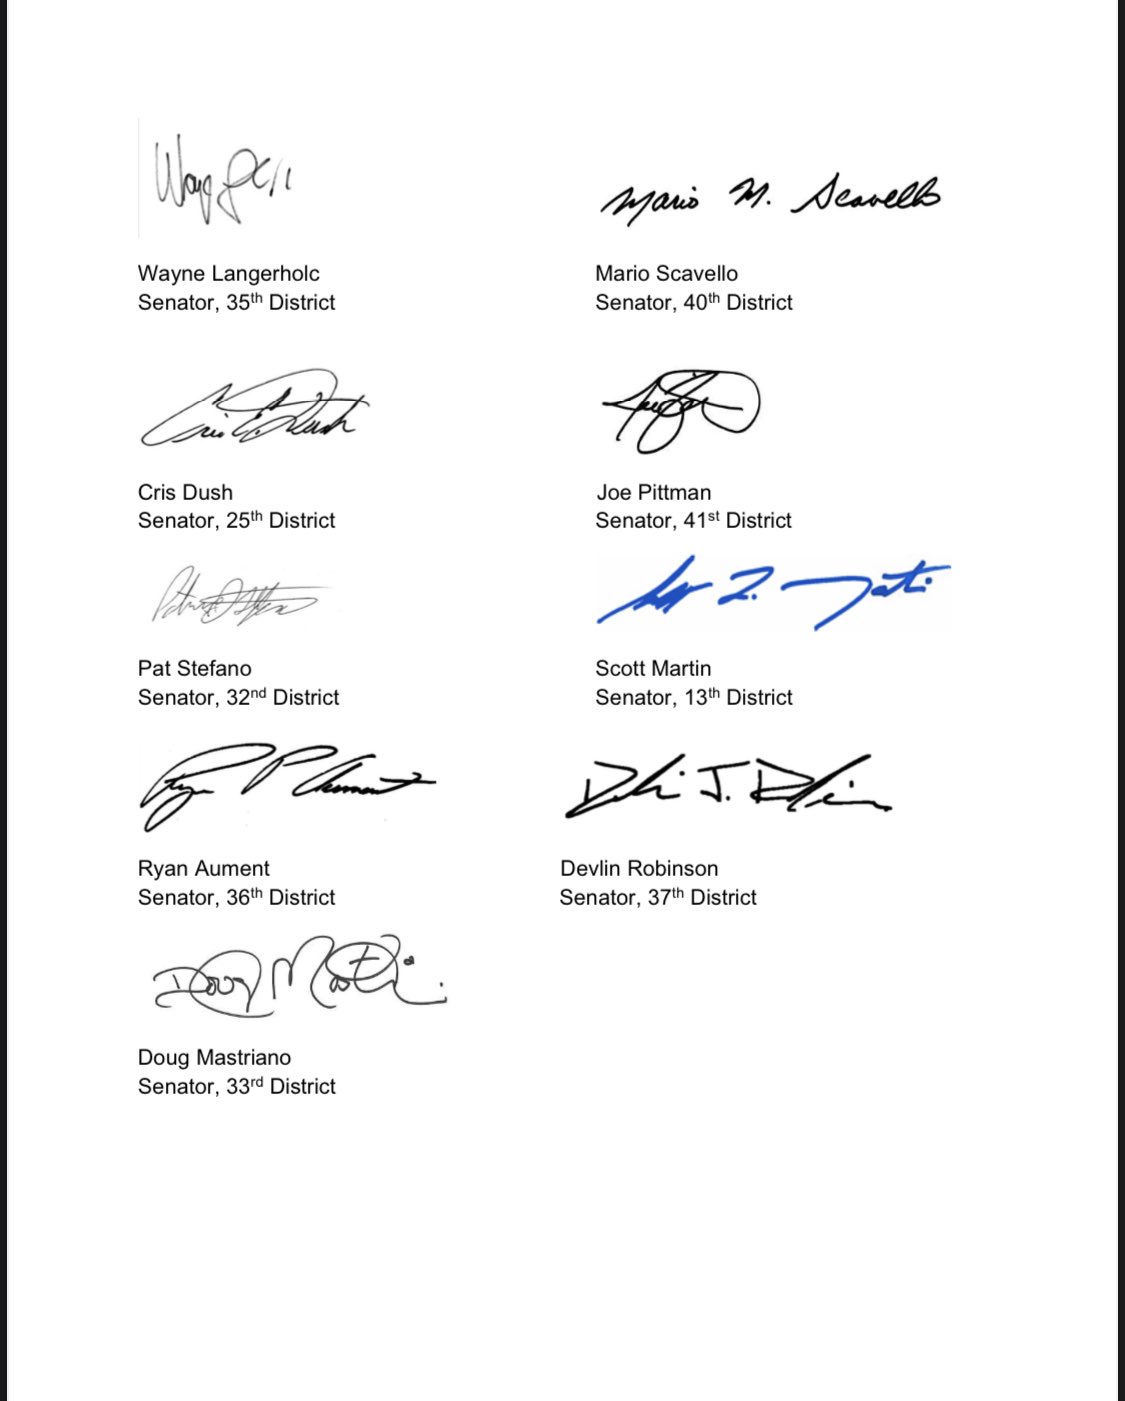 Mario M. Scavello
Wayne Langerholc
Senator, 35th District
Mario Scavello
Senator, 40th District
Cris E. Dush
Cris Dush
Senator, 25th District
Joe Pittman
Senator, 41st District
Pat Stefano
Senator, 32nd District
Scott Martin
Senator, 13th District
Ryan P Aument
Ryan Aument
Senator, 36th District
Devlin Robinson
Senator, 37th District
Doug Mastriano
Senator, 33rd District